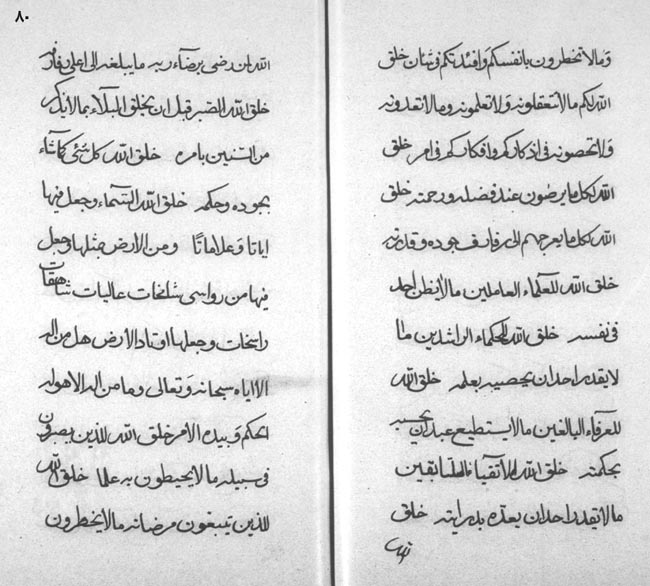 ٨٠
وما لا تخطرون بانفسكم وافئدتكم فی شان خلق
الله لكم ما لا تتعقلونه ولا تعلمونه وما لا تعدونه
ولا تحصونه فی اذكاركم وافكاركم فی امر خلق
الله لكل ما يرضون عند فضله ورحمته خلق
الله لكل ما يعرجهم الی رفارف جوده وقدرته
خلق الله للعلماء العاملين ما لا يظن احد
فی نفسه خلق الله للحكماء الراشدين ما
لا يقدر احد ان يحصيه بعلمه خلق الله
للعرفاء البالغين ما لا يستطيع عبد ان يحسبه
بحكمته خلق الله للاتقياء السابقين
ما لا يقدر احد ان يعده بدرايته خلق
الله
الله لمن رضی برضاء ربه ما يبلغه الی اعلی رفارف
خلق الله الصبر قبل ان يخلق البلاء بما لا يذكر
من السنين بامره خلق الله كل شئ كما شاء
بجوده وحكمه خلق الله السماء وجعل فيها
اياتا وعلاماتا ومن الارض مثلها وجعل
فيها من رواسی شامخات عاليات شاهقات
راسخات وجعلها اوتاد الارض هل من اله
الا اياه سبحانه وتعالی وما من اله الا هو له
الحكم وبيده الامر خلق الله للذين يصرفون
فی سبيله ما لا يحيطون به علما خلق الله
للذين يتبعون مرضاته ما لا يخطرون